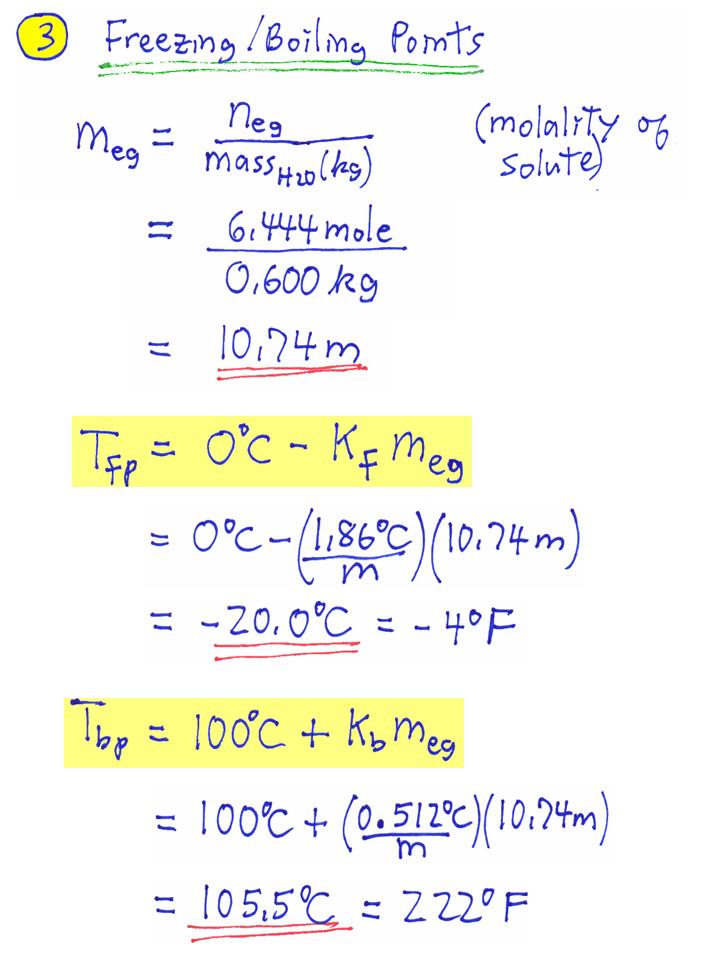 3 Freezing/Boiling Points
m_eg = n_eg / mass_H2O (kg) (molality of solute)
= 6.444 mole / 0.600 kg
= 10.74 m
T_fp = 0°C - K_f m_eg
= 0°C - (1.86°C / m)(10.74 m)
= -20.0°C = -4°F
T_bp = 100°C + K_b m_eg
= 100°C + (0.512°C / m)(10.74 m)
= 105.5°C = 222°F